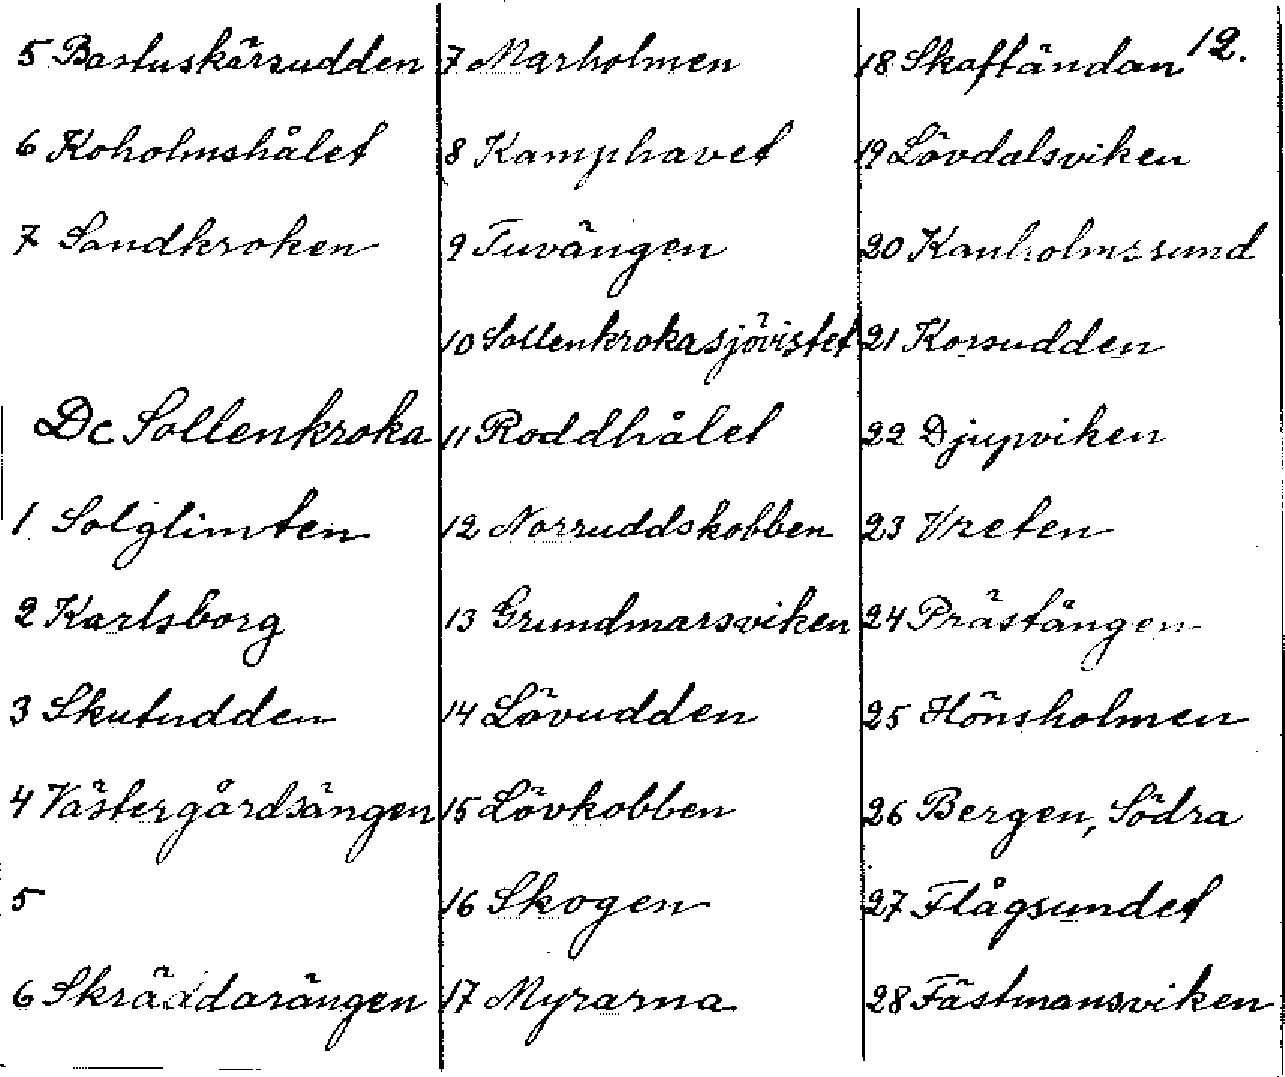 12.
5 Bastuskärsudden
6 Koholmshålet
7 Sandkroken
Dc Sollenkroka
1 Solglimten
2 Karlsborg
3 Skutudden
4 Västergårdsängen
5
6 Skräddarängen
7 Marholmen
8 Kamphavet
9 Tuvängen
10 Sollenkrokasjövistet
11 Roddhålet
12 Norruddskobben
13 Grundmarsviken
14 Lövudden
15 Lövkobben
16 Skogen
17 Myrarna
18 Skaftändan
19 Lövdalsviken
20 Kanholmssund
21 Korsudden
22 Djupviken
23 Vreten
24 Prästängen
25 Hönsholmen
26 Bergen, Södra
27 Flågsundet
28 Fästmansviken